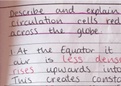 Describe and explain
circulation cells red
across the globe.
1. At the Equator it
air is less dense
rises upwards into
This creates consta